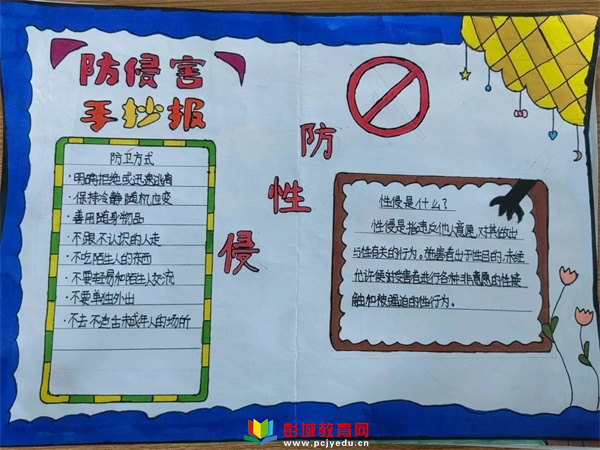 防侵害
手抄报
防卫方式
·明确拒绝或迅速逃离
·保持冷静随机应变
·善用随身物品
·不跟不认识的人走
·不吃陌生人的东西
·不要轻易和陌生人交流
·不要单独外出
·不去不适合未成年人的场所
防
性
侵
性侵是什么?
性侵是指违反他人意愿,对其做出
与性有关的行为。加害者出于性目的,未经
允许便对受害者进行各种非意愿的性接
触和被强迫的性行为。
彭城教育网
www.pcjyedu.cn